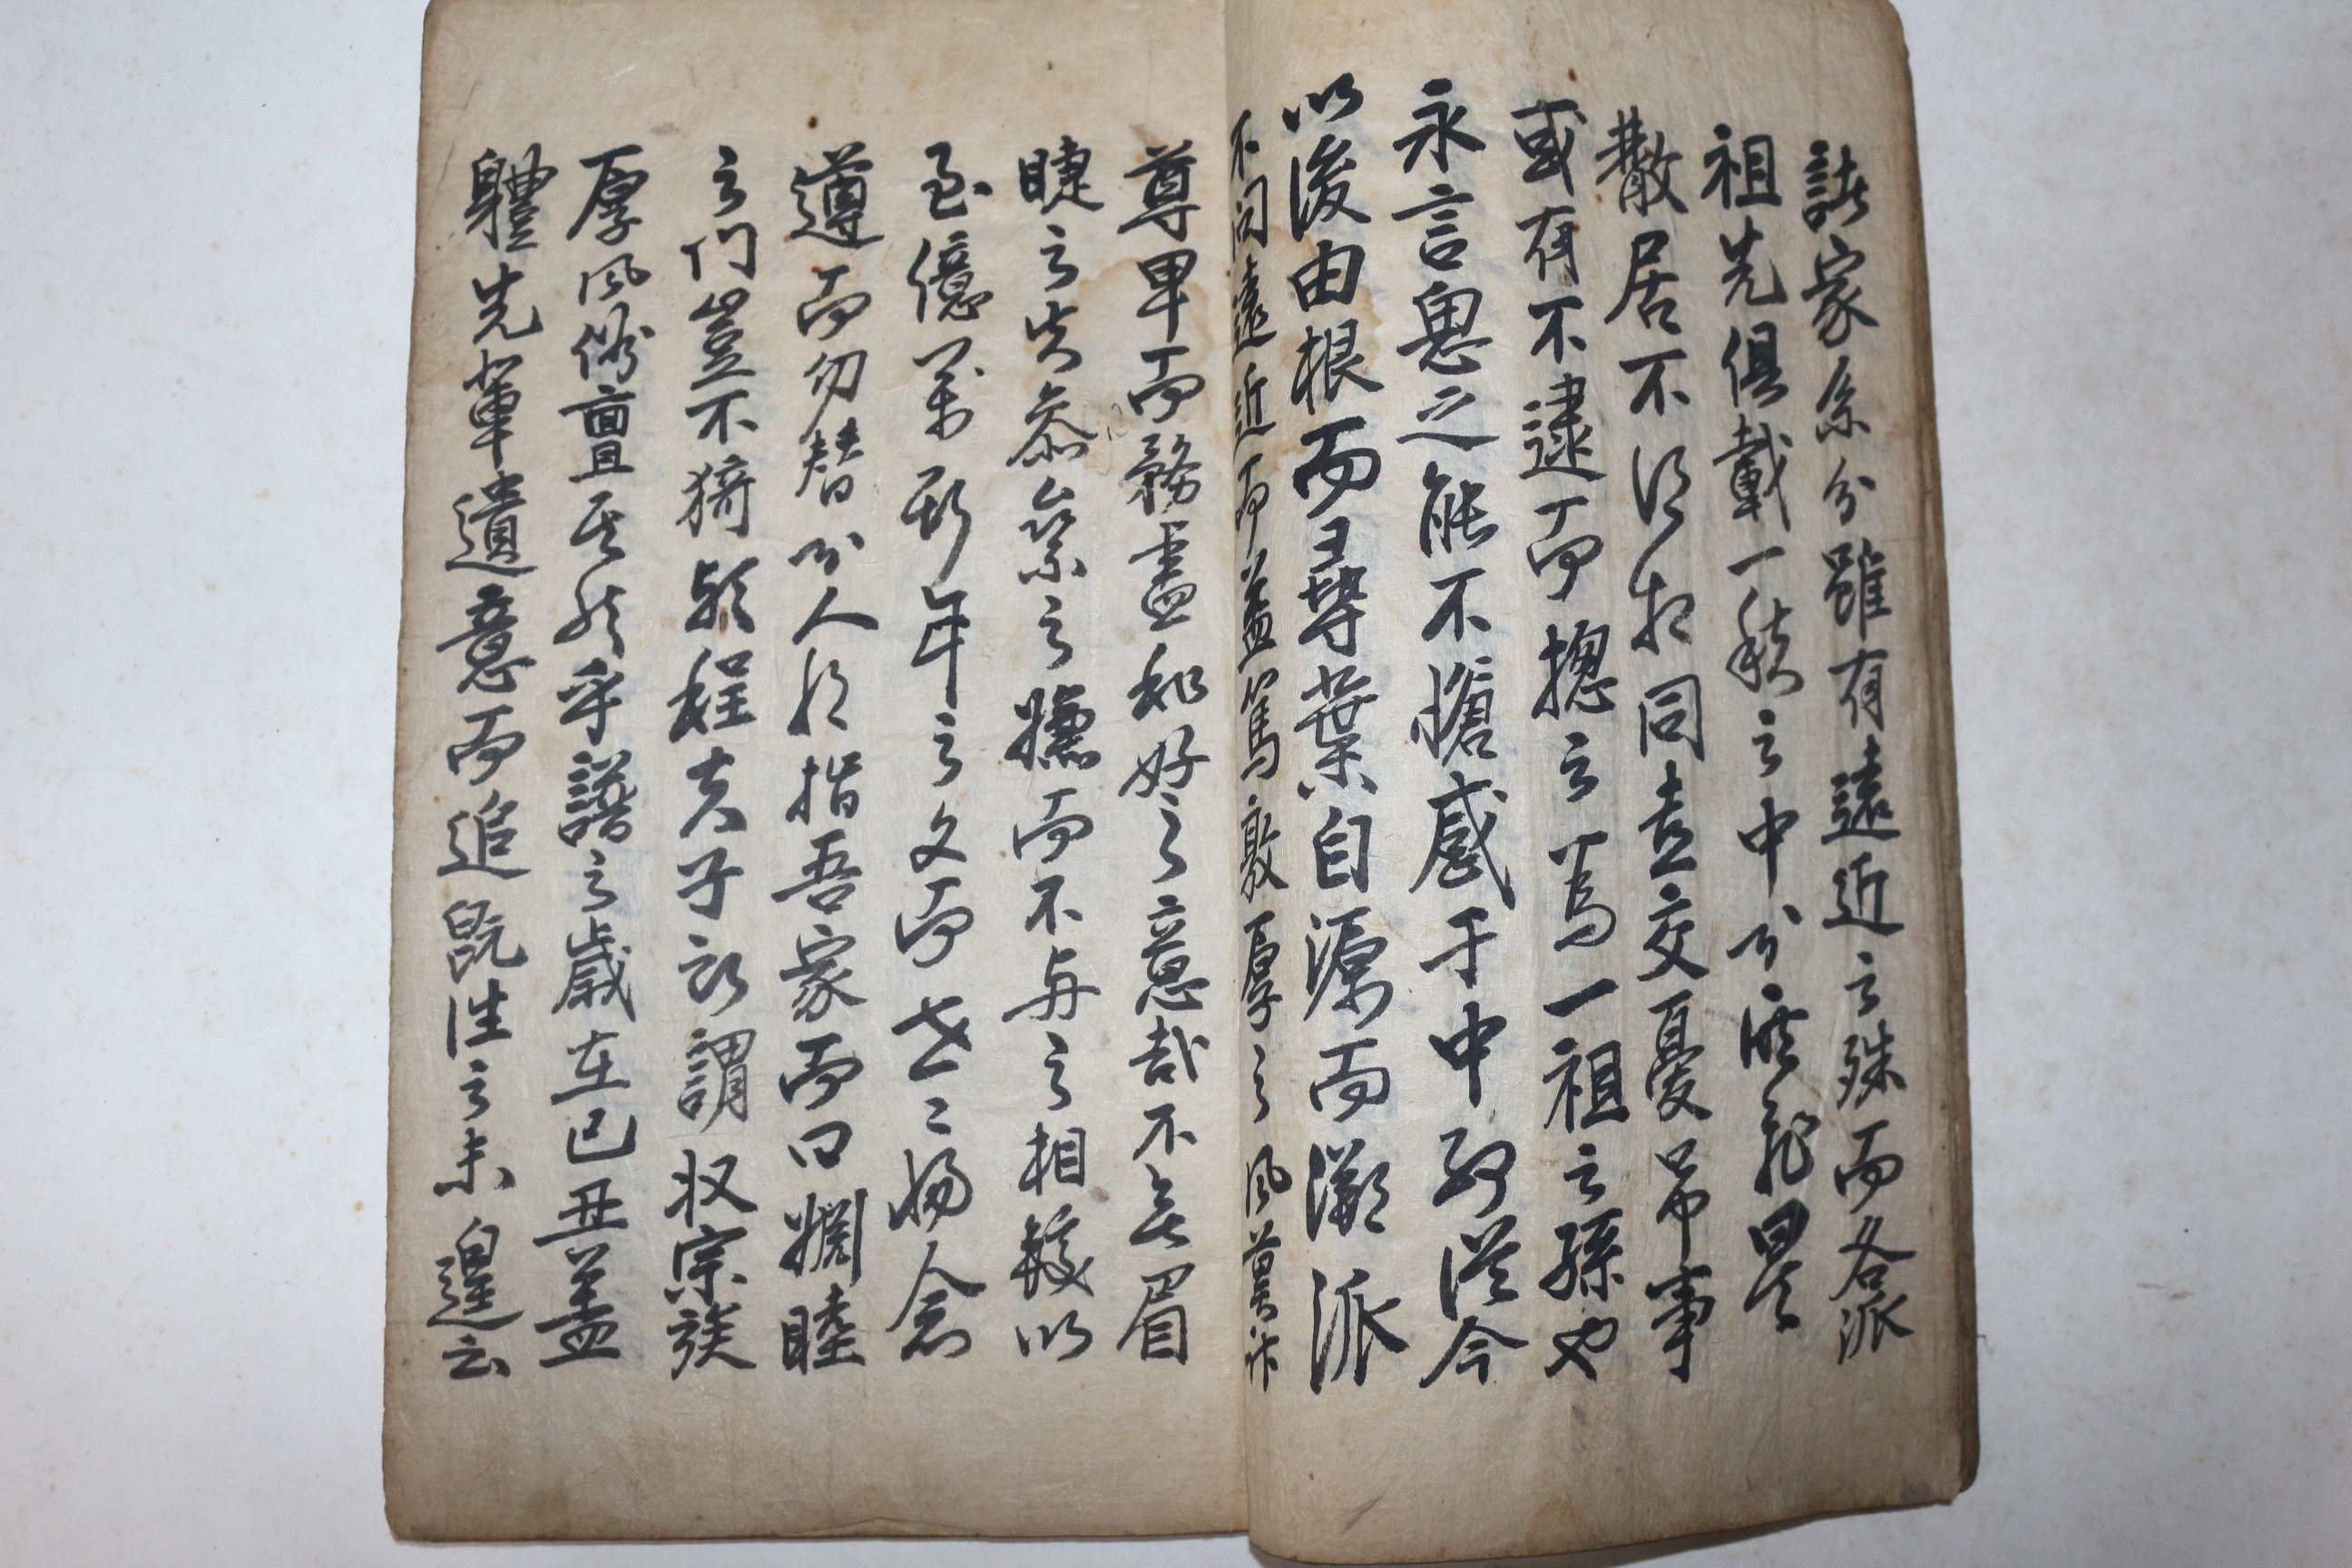 諸家系分雖有遠近之殊而各派
祖先俱戴一秩之中分派於是
散居不得相同吉交憂吊事
或有不逮而摠之爲一祖之孫也
永言思之能不愴感于中耶從今
以後由根而尋葉自源而派
不問遠近而益篤敦厚之風莫
尊卑而務盡和好之意哉不無眉
睫之失黍絫之而不与之相較以
至億萬斯年之久而世世念
遵而勿替則人必指吾家而曰睦
之門豈不猗歟程夫子所謂收宗族
厚風俗亶其然乎譜之歲在己丑蓋
軆先輩遺意而追旣往之未遑云